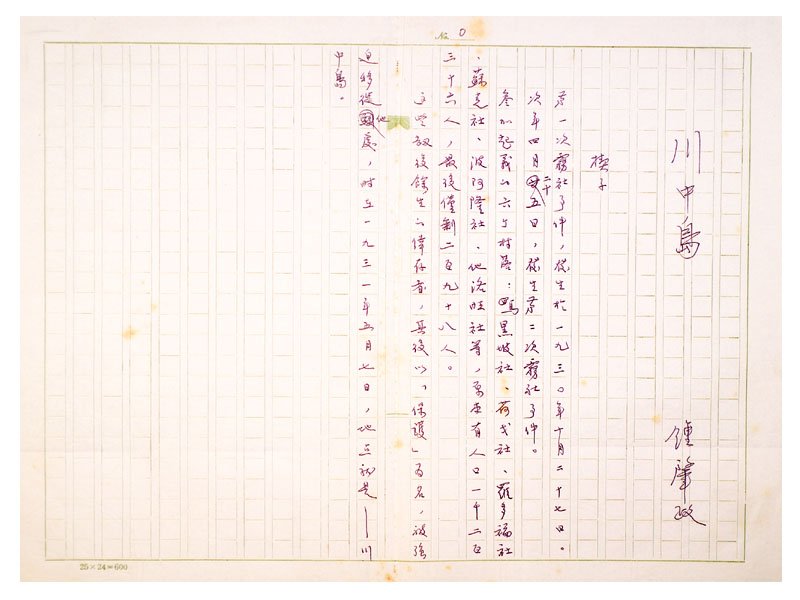 No. 0
川中島
鍾肇政
楔子
第一次霧社事件，發生於一九三〇年十月二十七日。
次年四月二十五日，發生第二次霧社事件。
參加起義的六個村落：馬黑坡社、荷戈社、羅多福社
、蘇克社、波阿隆社、他洛旺社等，原來有人口一千二百
三十六人，最後僅剩二百九十八人。
這些劫後餘生的倖存者，其後以「保護」為名，被強
迫移從他處，時在一九三一年五月七日，地点就是——川
中島。
25×24=600